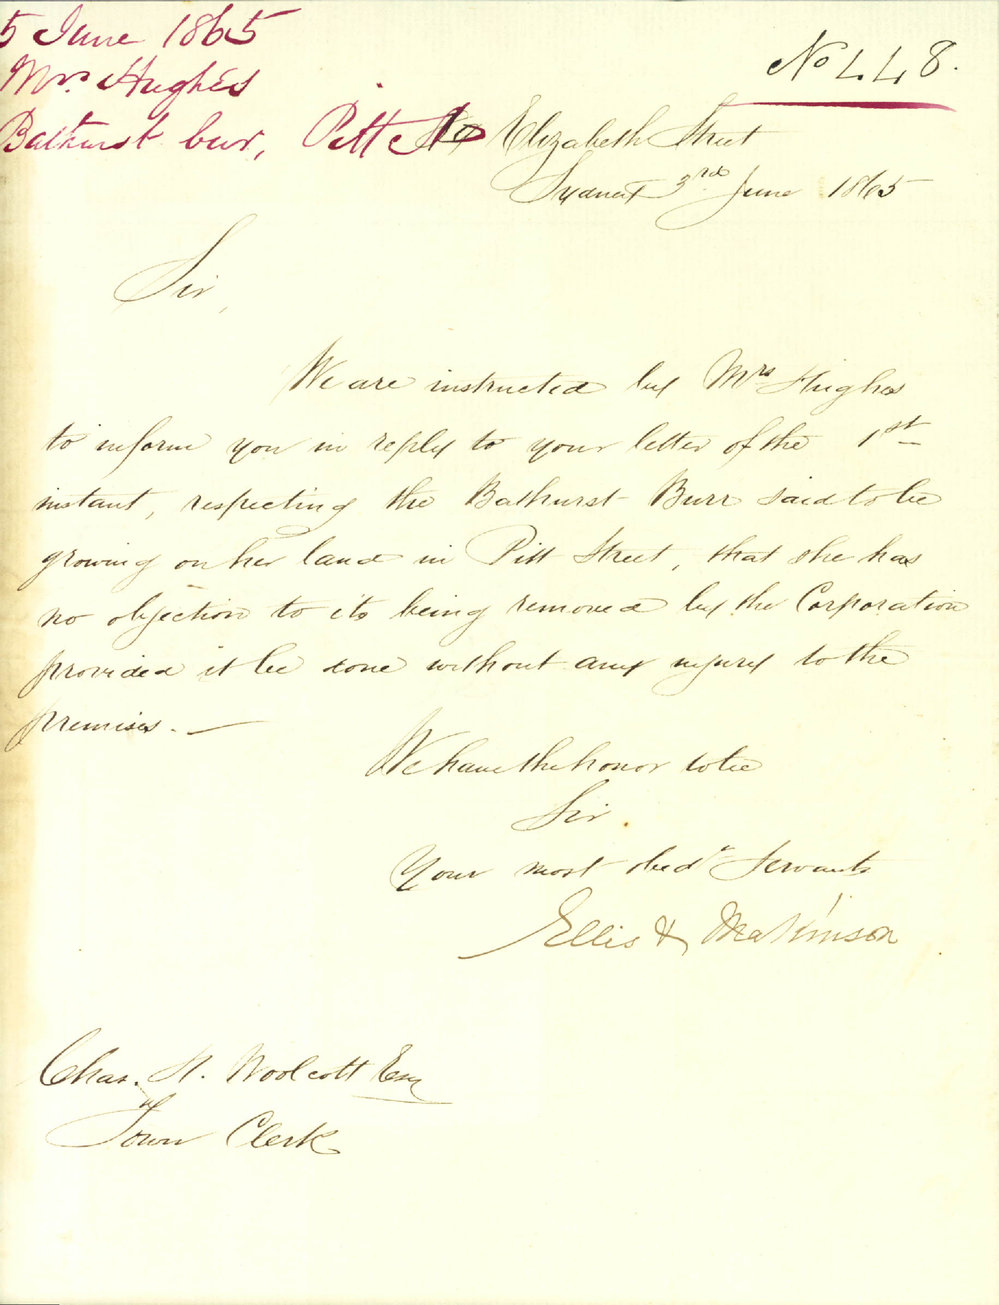 5 June 1865
Mrs. Hughes
Bathurst burr, Pitt St
No 448.
Elizabeth Street
Sydney 3rd June 1865
Sir,
We are instructed by Mrs Hughes
to inform you in reply to your letter of the 1st
instant, respecting the Bathurst Burr said to be
growing on her land in Pitt Street, that she has
no objection to its being removed by the Corporation
provided it be done without any injury to the
premises. —
We have the honor to be
Sir.
Your most obedt Servants
Ellis & Makinson
Chas. H. Woolcott Esq
Town Clerk